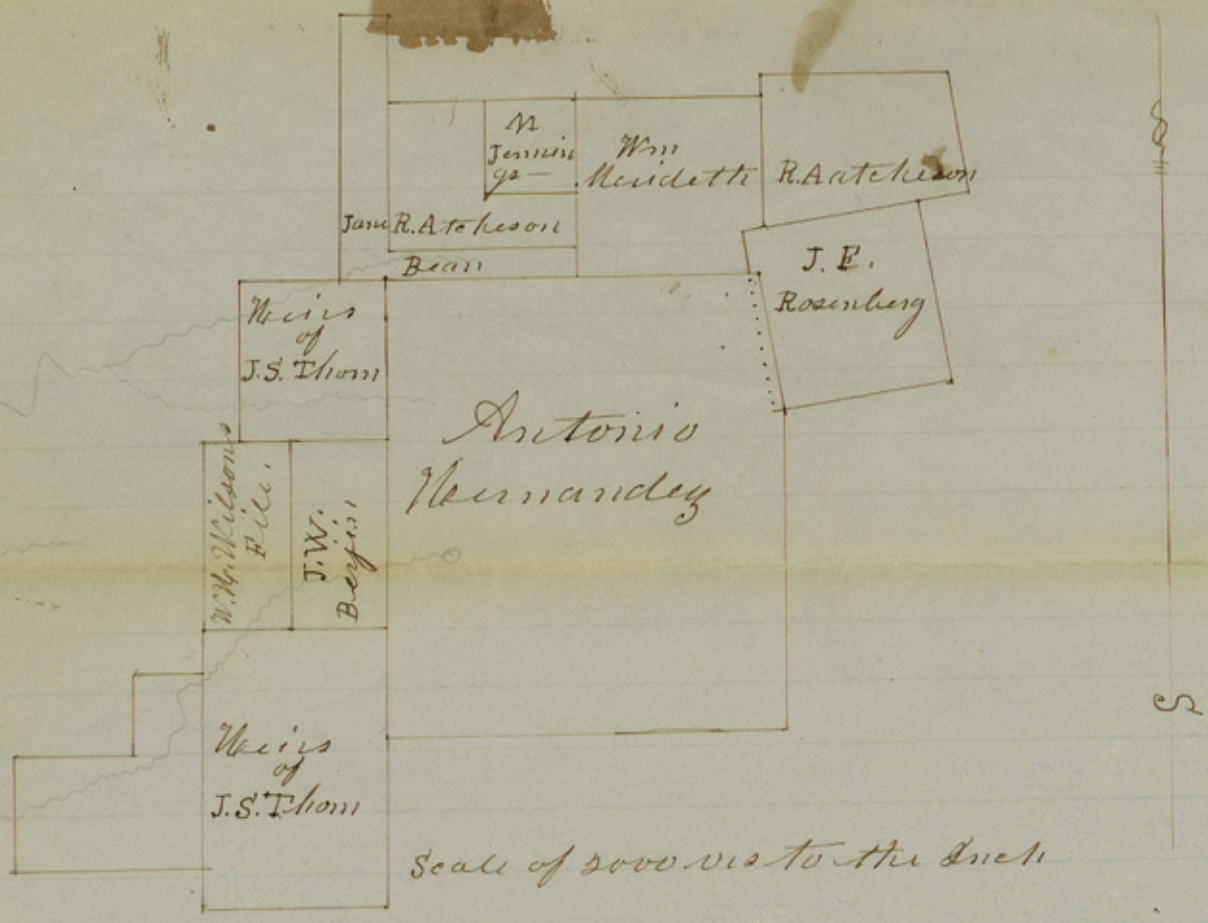 N
Jennin
gs—
Wm
Merideth
R. Aatcheson
Jane R. Atcheson
Bean
J. E.
Rosenberg
Heirs
of
J.S. Thom
Antonio
Hernandez
W. H. Wilsons
File.
J. W.
Heirs
of
J.S. Thom
S
Scale of 2000 vrs to the Inch